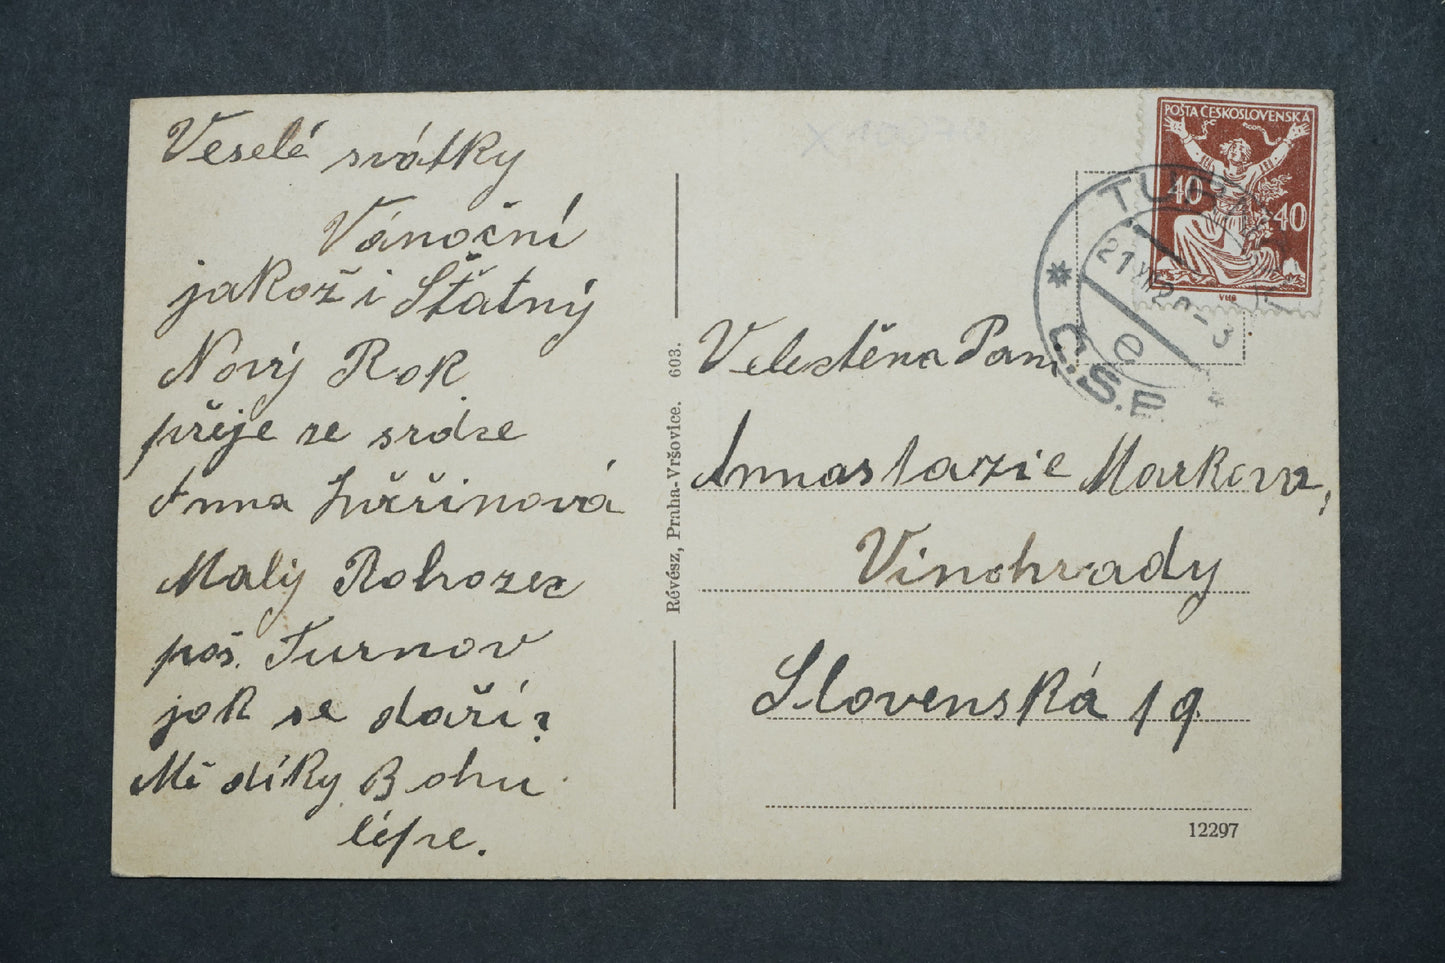 Veselé svátky
Vánoční
jakož i Šťatný
Nový Rok
přeje ze srdce
Anna
Malý Rohozec
poš. Turnov
jak se daří?
Mě díky Bohu
lépe.
Révész, Praha-Vršovice. 603.
POŠTA ČESKOSLOVENSKÁ
40 40
VHB
TUR
21 XII 20 - 3
e
Č.S.P.
Velectěna Paní
Annastazie Markova,
Vinohrady
Slovenská 19.
12297